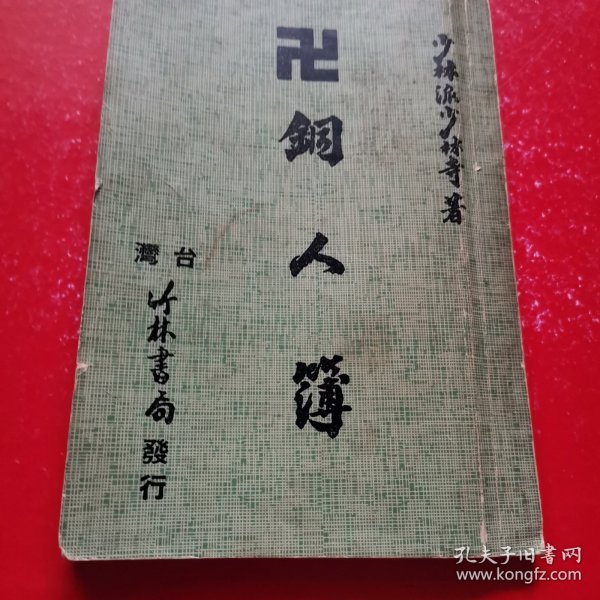 少林派少林寺著
卍銅人簿
台灣
竹林書局發行
孔夫子旧书网
www.kongfz.com